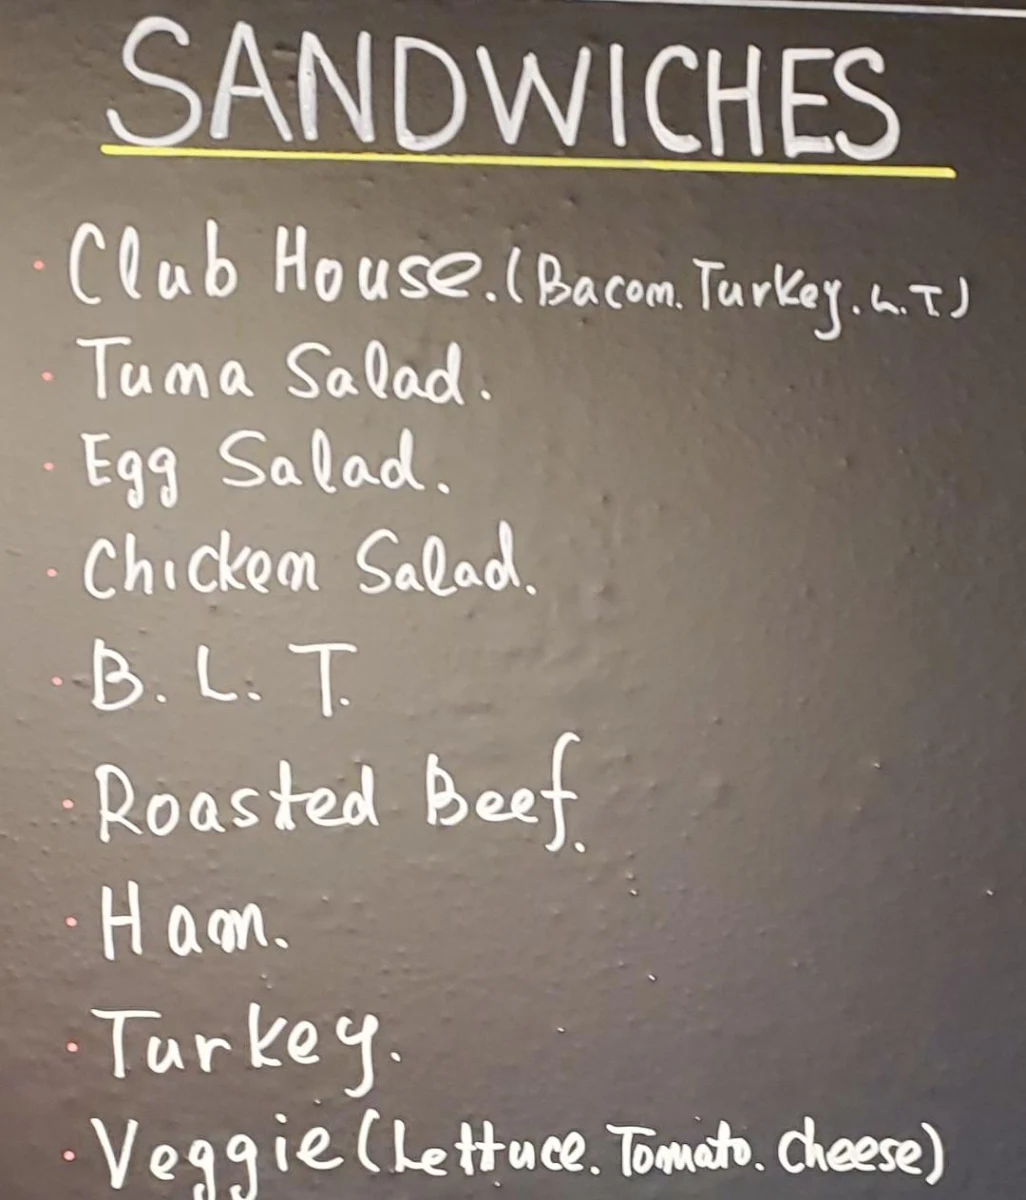 SANDWICHES
· Club House. (Bacon. Turkey. L. T)
· Tuna Salad.
· Egg Salad.
· Chicken Salad.
· B. L. T.
· Roasted Beef.
· Ham.
· Turkey.
· Veggie (Lettuce. Tomato. Cheese)